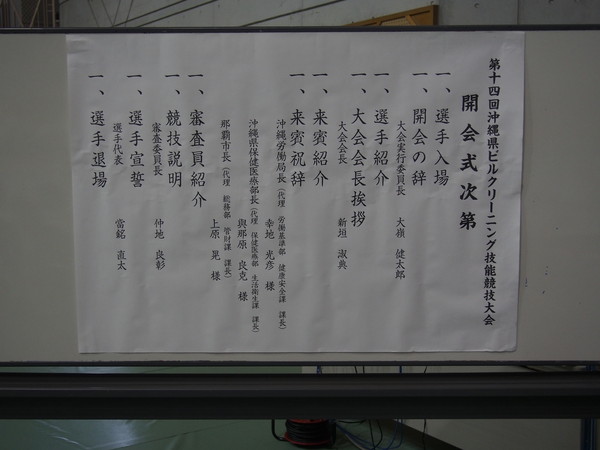 第十四回沖縄県ビルクリーニング技能競技大会
開会式次第
一、選手入場
一、開会の辞
大会実行委員長 大嶺 健太郎
一、選手紹介
一、大会会長挨拶
大会会長 新垣 淑典
一、来賓紹介
一、来賓祝辞
沖縄労働局長(代理 労働基準部 健康安全課 課長)
幸地 光彦 様
沖縄県保健医療部長(代理 保健医療部 生活衛生課 課長)
與那原 良克 様
那覇市長(代理 総務部 管財課 課長)
上原 晃 様
一、審査員紹介
一、競技説明
審査委員長 仲地 良彰
一、選手宣誓
選手代表 當銘 直太
一、選手退場